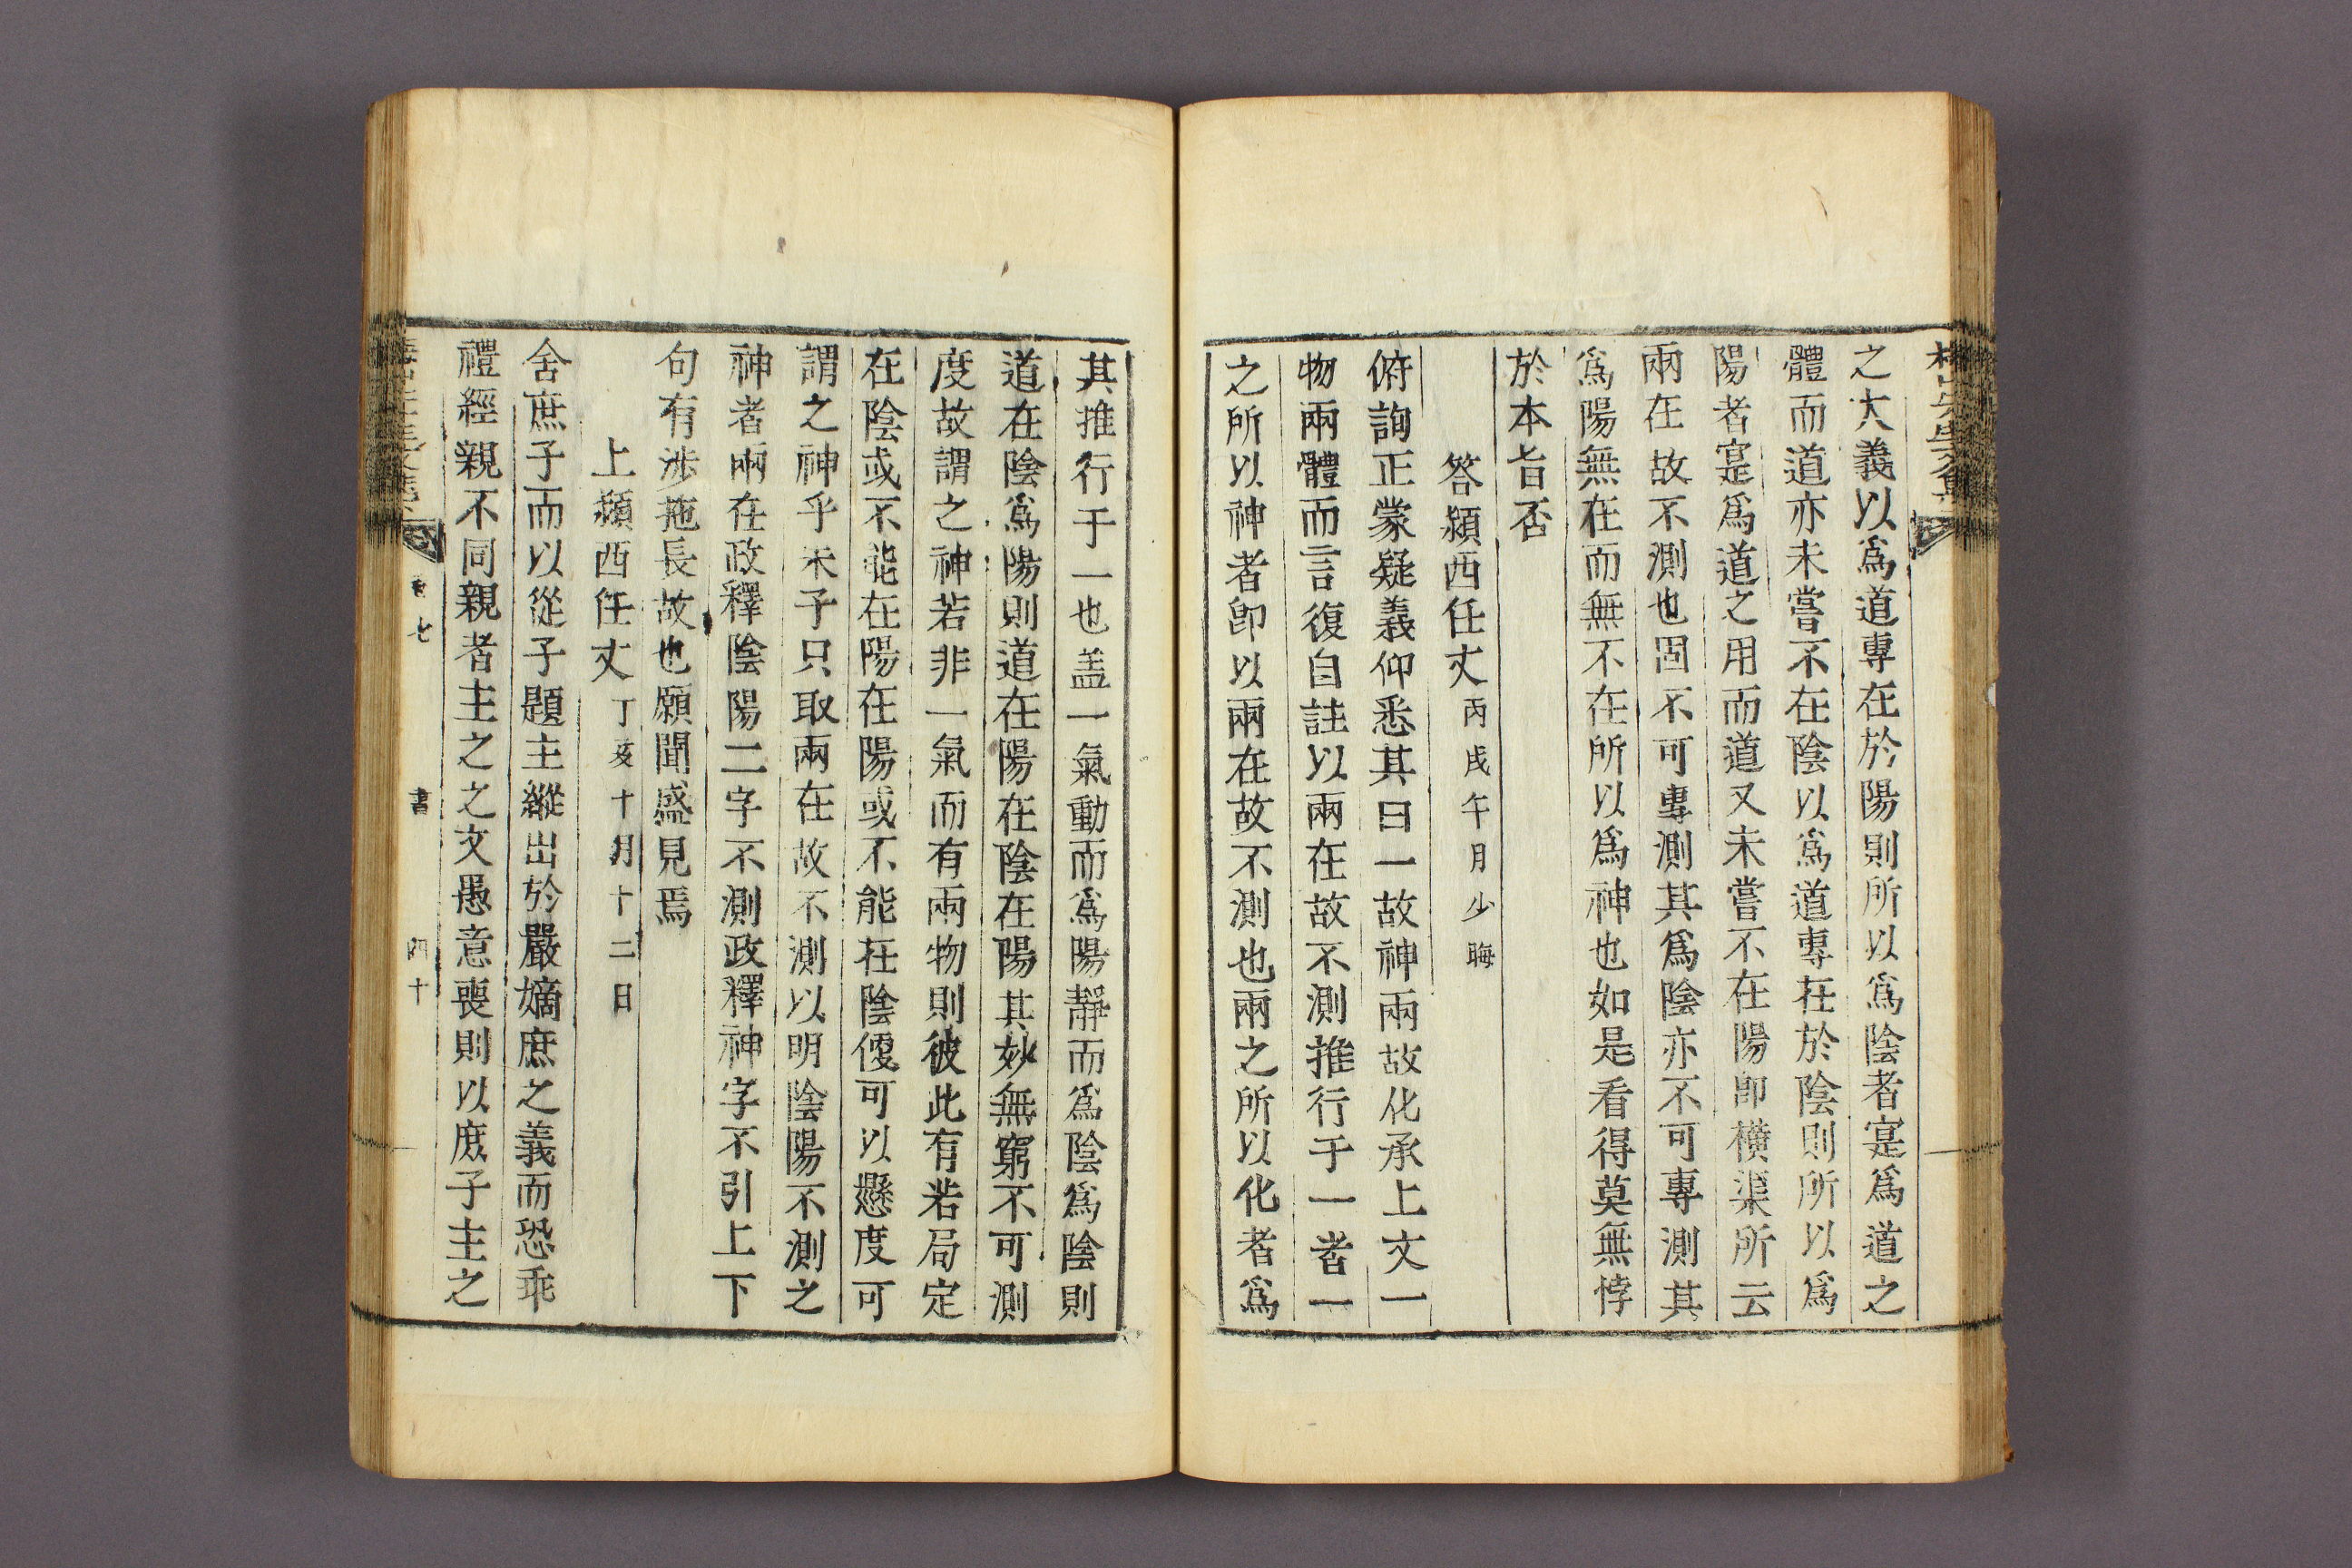 之大義以爲道專在於陽則所以爲陰者寔爲道之
體而道亦未嘗不在陰以爲道專在於陰則所以爲
陽者寔爲道之用而道又未嘗不在陽卽橫渠所云
兩在故不測也固不可專測其爲陰亦不可專測其
爲陽無在而無不在所以爲神也如是看得莫無悖
於本旨否
答潁西任丈丙戌午月少晦
俯詢正蒙疑義仰悉其曰一故神兩故化承上文一
物兩體而言復自註以兩在故不測推行于一者一
之所以神者卽以兩在故不測也兩之所以化者爲
其推行于一也盖一氣動而爲陽靜而爲陰爲陰則
道在陰爲陽則道在陽在陰在陽其妙無窮不可測
度故謂之神若非一氣而有兩物則彼此有若局定
在陰或不能在陽在陽或不能在陰便可以懸度可
謂之神乎朱子只取兩在故不測以明陰陽不測之
神者兩在政釋陰陽二字不測政釋神字不引上下
句有涉拖長故也願聞盛見焉
上潁西任丈丁亥十月十二日
舍庶子而以從子題主縱出於嚴嫡庶之義而恐乖
禮經親不同親者主之之文愚意喪則以庶子主之
七
書
四十